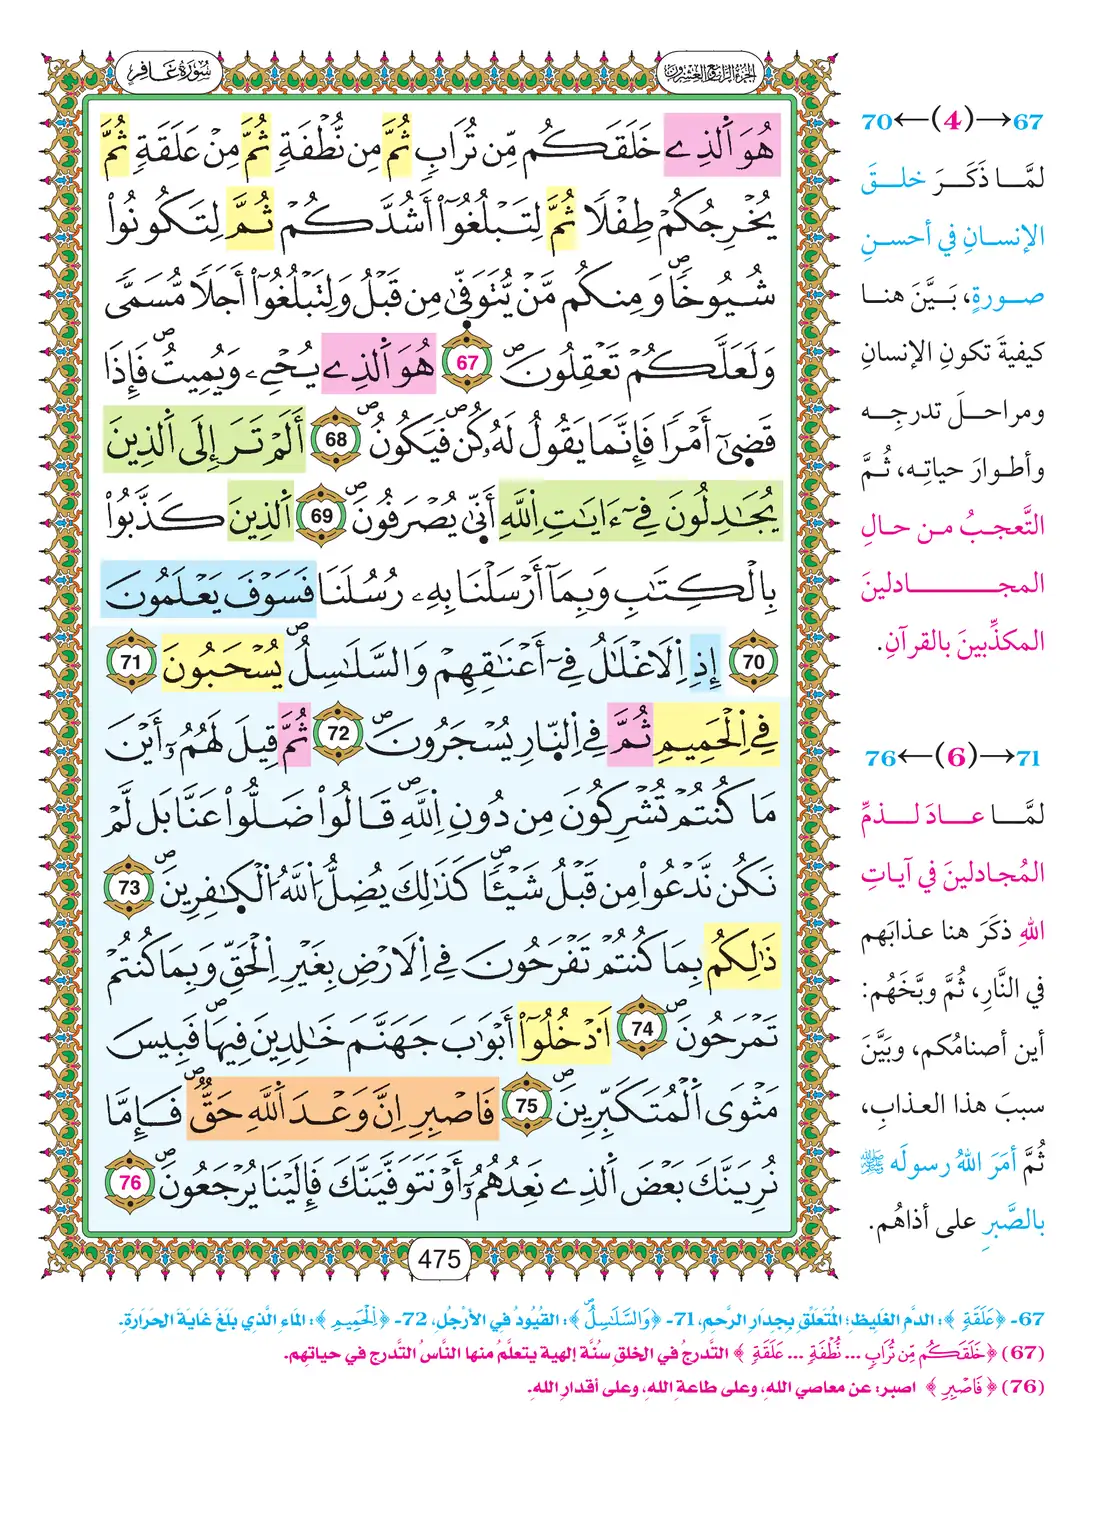 الجزء الرابع والعشرون
سُورَةُ غَافِرٍ
هُوَ اَ۬لذِے خَلَقَكُم مِّن تُرَابٖ ثُمَّ مِن نُّطْفَةٖ ثُمَّ مِنْ عَلَقَةٖ ثُمَّ
يُخْرِجُكُمْ طِفْلاٗ ثُمَّ لِتَبْلُغُوٓاْ أَشُدَّكُمْ ثُمَّ لِتَكُونُواْ
شُيُوخاٗۖ وَمِنكُم مَّنْ يُّتَوَفّٰى مِن قَبْلُ وَلِتَبْلُغُوٓاْ أَجَلاٗ مُّسَمّٗى
وَلَعَلَّكُمْ تَعْقِلُونَۖ 67 هُوَ اَ۬لذِے يُحْيِۦ وَيُمِيتُۖ فَإِذَا
قَضٰىٓ أَمْراٗ فَإِنَّمَا يَقُولُ لَهُۥ كُنۖ فَيَكُونُۖ 68 أَلَمْ تَرَ إِلَى اَ۬لذِينَ
يُجَٰدِلُونَ فِےٓ ءَايَٰتِ اِ۬للَّهِ أَنّٰى يُصْرَفُونَۖ 69 اَ۬لذِينَ كَذَّبُواْ
بِالْكِتَٰبِ وَبِمَآ أَرْسَلْنَا بِهِۦ رُسُلَنَا فَسَوْفَ يَعْلَمُونَ
70 إِذِ اِ۬لَاغْلَٰلُ فِےٓ أَعْنَٰقِهِمْ وَالسَّلَٰسِلُۖ يُسْحَبُونَ 71
فِے اِ۬لْحَمِيمِ ثُمَّ فِے اِ۬لنّ۪ارِ يُسْجَرُونَۖ 72 ثُمَّ قِيلَ لَهُمُۥٓ أَيْنَ
مَا كُنتُمْ تُشْرِكُونَ مِن دُونِ اِ۬للَّهِۖ قَالُواْ ضَلُّواْ عَنَّا بَل لَّمْ
نَكُن نَّدْعُواْ مِن قَبْلُ شَيْـٔاٗۖ كَذَٰلِكَ يُضِلُّ اُ۬للَّهُ اُ۬لْكٰ۪فِرِينَۖ 73
ذَٰلِكُم بِمَا كُنتُمْ تَفْرَحُونَ فِے اِ۬لَارْضِ بِغَيْرِ اِ۬لْحَقِّ وَبِمَا كُنتُمْ
تَمْرَحُونَۖ 74 اَ۟دْخُلُوٓاْ أَبْوَٰبَ جَهَنَّمَ خَٰلِدِينَ فِيهَاۖ فَبِيسَ
مَثْوَى اَ۬لْمُتَكَبِّرِينَۖ 75 فَاصْبِرِ اِنَّ وَعْدَ اَ۬للَّهِ حَقّٞۖ فَإِمَّا
نُرِيَنَّكَ بَعْضَ اَ۬لذِے نَعِدُهُمُۥٓ أَوْ نَتَوَفَّيَنَّكَ فَإِلَيْنَا يُرْجَعُونَۖ 76
475
67→(4)←70
لمَّا ذَكَرَ خلقَ
الإنسانِ في أحسنِ
صورةٍ، بَيَّنَ هنا
كيفيةَ تكونِ الإنسانِ
ومراحلَ تدرجِه
وأطوارَ حياتِه، ثُمَّ
التَّعجبُ من حالِ
المجادلينَ
المكذِّبينَ بالقرآنِ.
71→(6)←76
لمَّا عادَ لذمِّ
المُجادلينَ في آياتِ
اللهِ ذكَرَ هنا عذابَهم
في النَّارِ، ثُمَّ وبَّخَهُم:
أين أصنامُكم، وبَيَّنَ
سببَ هذا العذابِ،
ثُمَّ أمَرَ اللهُ رسولَه ﷺ
بالصَّبرِ على أذاهُم.
67- ﴿عَلَقَةٖ﴾: الدَّم الغَلِيظِ؛ المُتَعَلِّقِ بِجِدَارِ الرَّحِمِ، 71- ﴿وَالسَّلَٰسِلُۖ﴾: القُيُودُ فِي الأَرْجُلِ، 72- ﴿اِ۬لْحَمِيمِ﴾: المَاءِ الَّذِي بَلَغَ غَايَةَ الحَرَارَةِ.
(67) ﴿خَلَقَكُم مِّن تُرَابٖ ... نُّطْفَةٖ ... عَلَقَةٖ﴾ التَّدرجُ في الخلقِ سنَّة إلهية يتعلَّمُ منها النَّاس التَّدرج في حياتِهم.
(76) ﴿فَاصْبِرِ﴾ اصبر: عن معاصي الله، وعلى طاعة الله، وعلى أقدار الله.